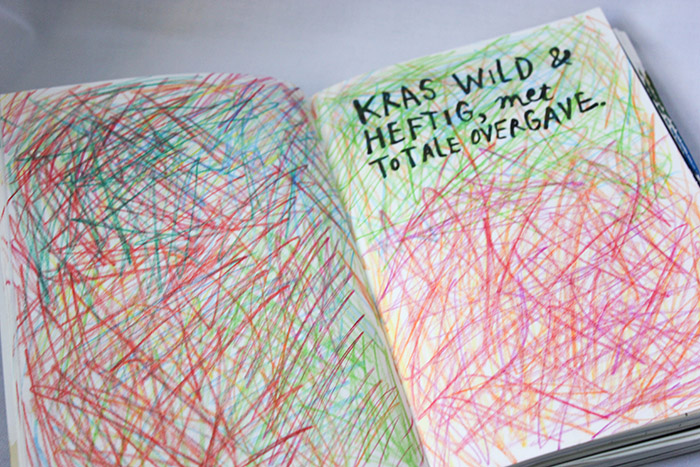 KRAS WILD &
HEFTIG, met
TOTALE OVERGAVE.